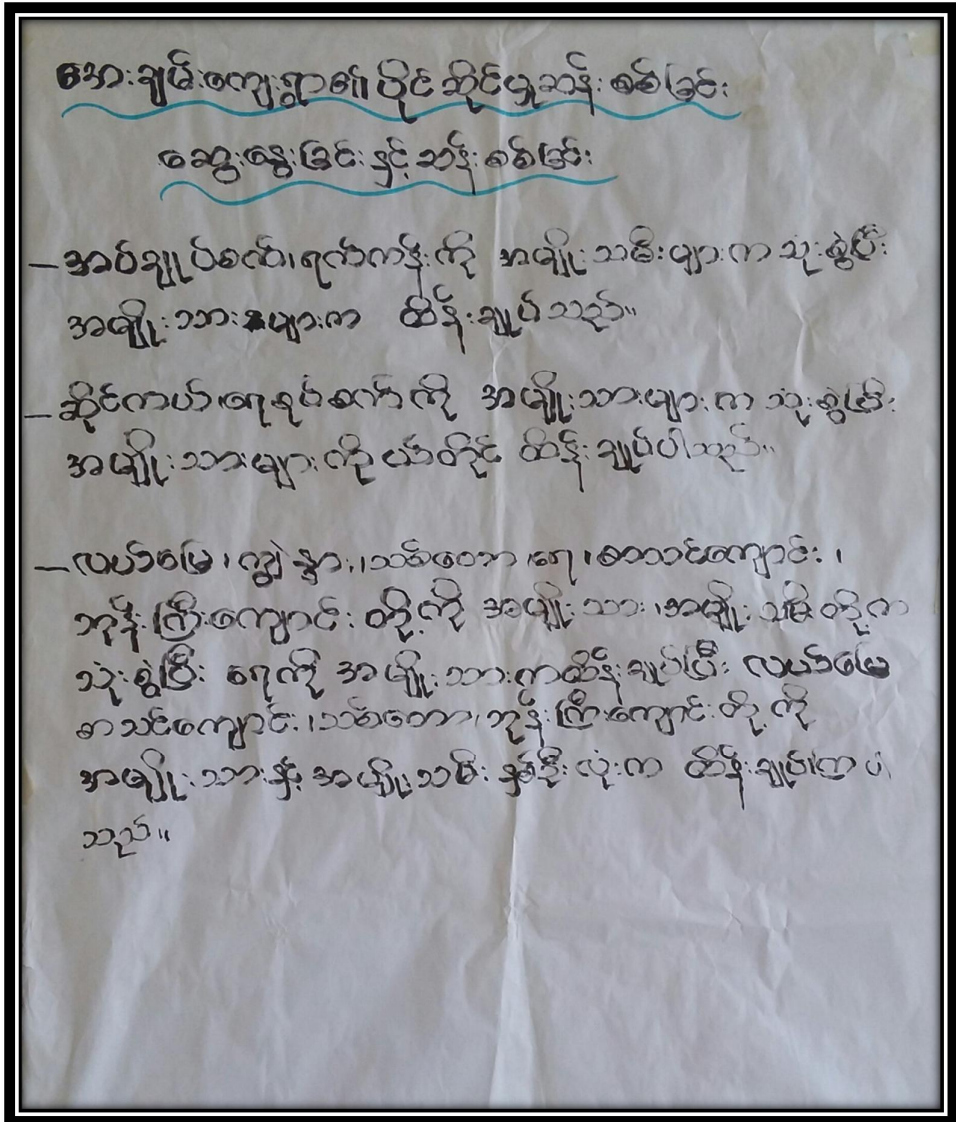 အေးချမ်းကျေးရွာ၏ ပိုင်ဆိုင်မှုဆန်းစစ်ခြင်း
ဆွေးနွေးခြင်းနှင့်ဆန်းစစ်ခြင်း
– အပ်ချုပ်စက်၊ ရက်ကန်းကို အမျိုးသမီးများက သုံးစွဲပြီး
အမျိုးသားများက ထိန်းချုပ်သည်။
– ဆိုင်ကယ်၊ ရေစုပ်စက်ကို အမျိုးသားများက သုံးစွဲပြီး
အမျိုးသားများကိုယ်တိုင် ထိန်းချုပ်ပါသည်။
– လယ်မြေ၊ ကျွဲ နွား၊ သစ်တော၊ ရေ၊ စာသင်ကျောင်း၊
ဘုန်းကြီးကျောင်းတို့ကို အမျိုးသား၊ အမျိုးသမီးတို့က
သုံးစွဲပြီး ရေကို အမျိုးသားကထိန်းချုပ်ပြီး လယ်မြေ
စာသင်ကျောင်း၊ သစ်တော၊ ဘုန်းကြီးကျောင်းတို့ကို
အမျိုးသားနှင့် အမျိုးသမီး နှစ်ဦးလုံးက ထိန်းချုပ်ကြပါ
သည်။